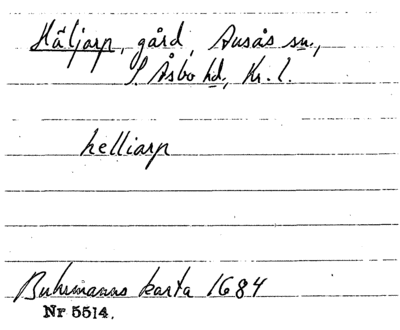 Häljarp, gård, Ausås sn.,
S. Åsbo hd, Kr. l.
helliarp
Buhrmanns karta 1684
Nr 5514.